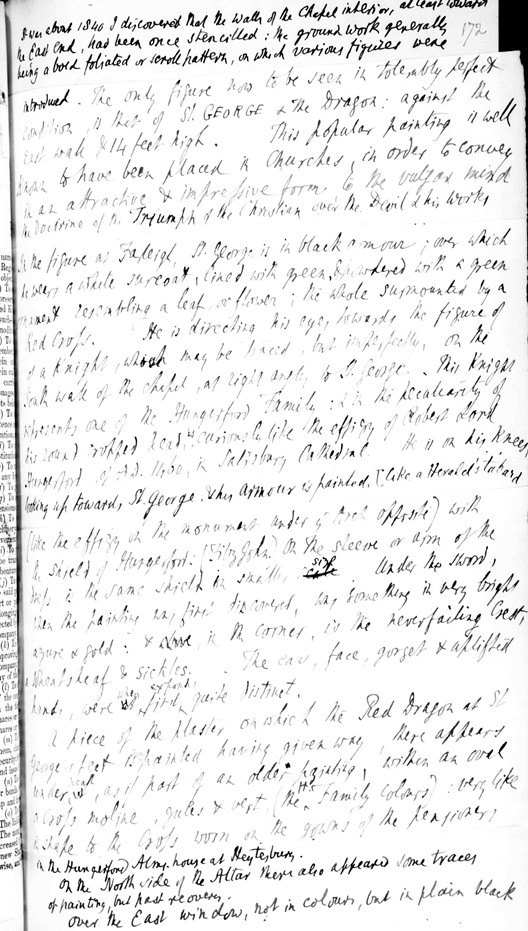 It was about 1840 I discovered that the walls of the Chapel interior, at least towards
the East End, had been once stencilled: the ground work generally
being a bold foliated or scroll pattern, on which various figures were
172
introduced. The only figure now to be seen in tolerably perfect
condition is that of St. GEORGE & the Dragon: against the
East wall & 14 feet high. This popular painting is well
known to have been placed in Churches, in order to convey
in an attractive & impressive form to the vulgar mind
the doctrine of the Triumph of the Christian over the Devil & his works
In the figure at Farleigh, St. George is in black armour; over which
he wears a white surcoat, lined with green, & powdered with a green
ornament resembling a leaf or flower; the whole surmounted by a
Red Cross. He is directing his eyes towards the figure of
of a Knight, which may be traced, but imperfectly, on the
South wall of the chapel, at right angles to St. George. This Knight
represents one of the Hungerford Family: & in the peculiarity of
his round cropped head, is curiously like the effigy of Robert Lord
Hungerford of A.D. 1460, in Salisbury Cathedral. He is on his Knees,
looking up towards St. George. & his armour is painted, (like a Herald's tabard
(like the effigy on the monument under ye Arch opposite) with
the shield of Hungerford: (Fitzjohn) On the sleeve or arm of the
is the same shield in smaller size Under the sword,
when the painting was first discovered, was something in very bright
azure & gold: & above, in the corner, is the never failing Crest,
a Wheatsheaf & sickles. The ear, face, gorget & uplifted
hands, were when first exposed, quite distinct.
A piece of the plaster on which the Red Dragon at St
George's feet is painted having given way, there appears
underneath, as if part of an older painting, within an oval
a Cross moline, gules & vert (the Hd Family colours): very like
in shape to the Cross worn on the gowns of the pensioners
in the Hungerford Alms-house at Heytesbury.
On the North side of the Altar there also appeared some traces
of painting, but past recovery.
Over the East window, not in colours, but in plain black